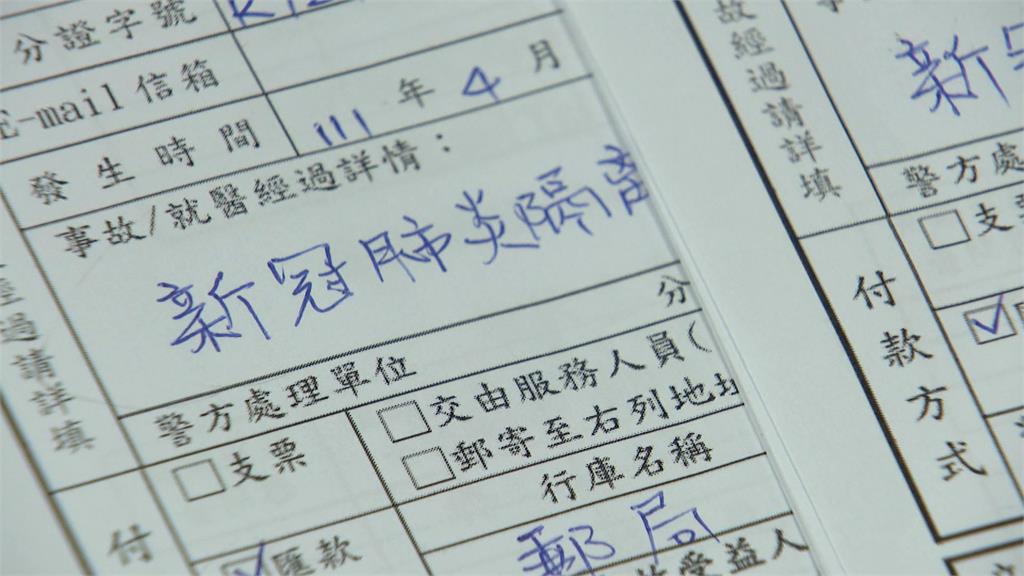 分證字號
E-mail信箱
發生時間 111年4月
事故/就醫經過詳情：
新冠肺炎隔離
分
經過請詳填
警方處理單位
□支票
□交由服務人員(
□郵寄至右列地址
付
☑匯款
行庫名稱
郵局
受益人
故經過請詳填
新冠
警方處
□支
付款方式
☑